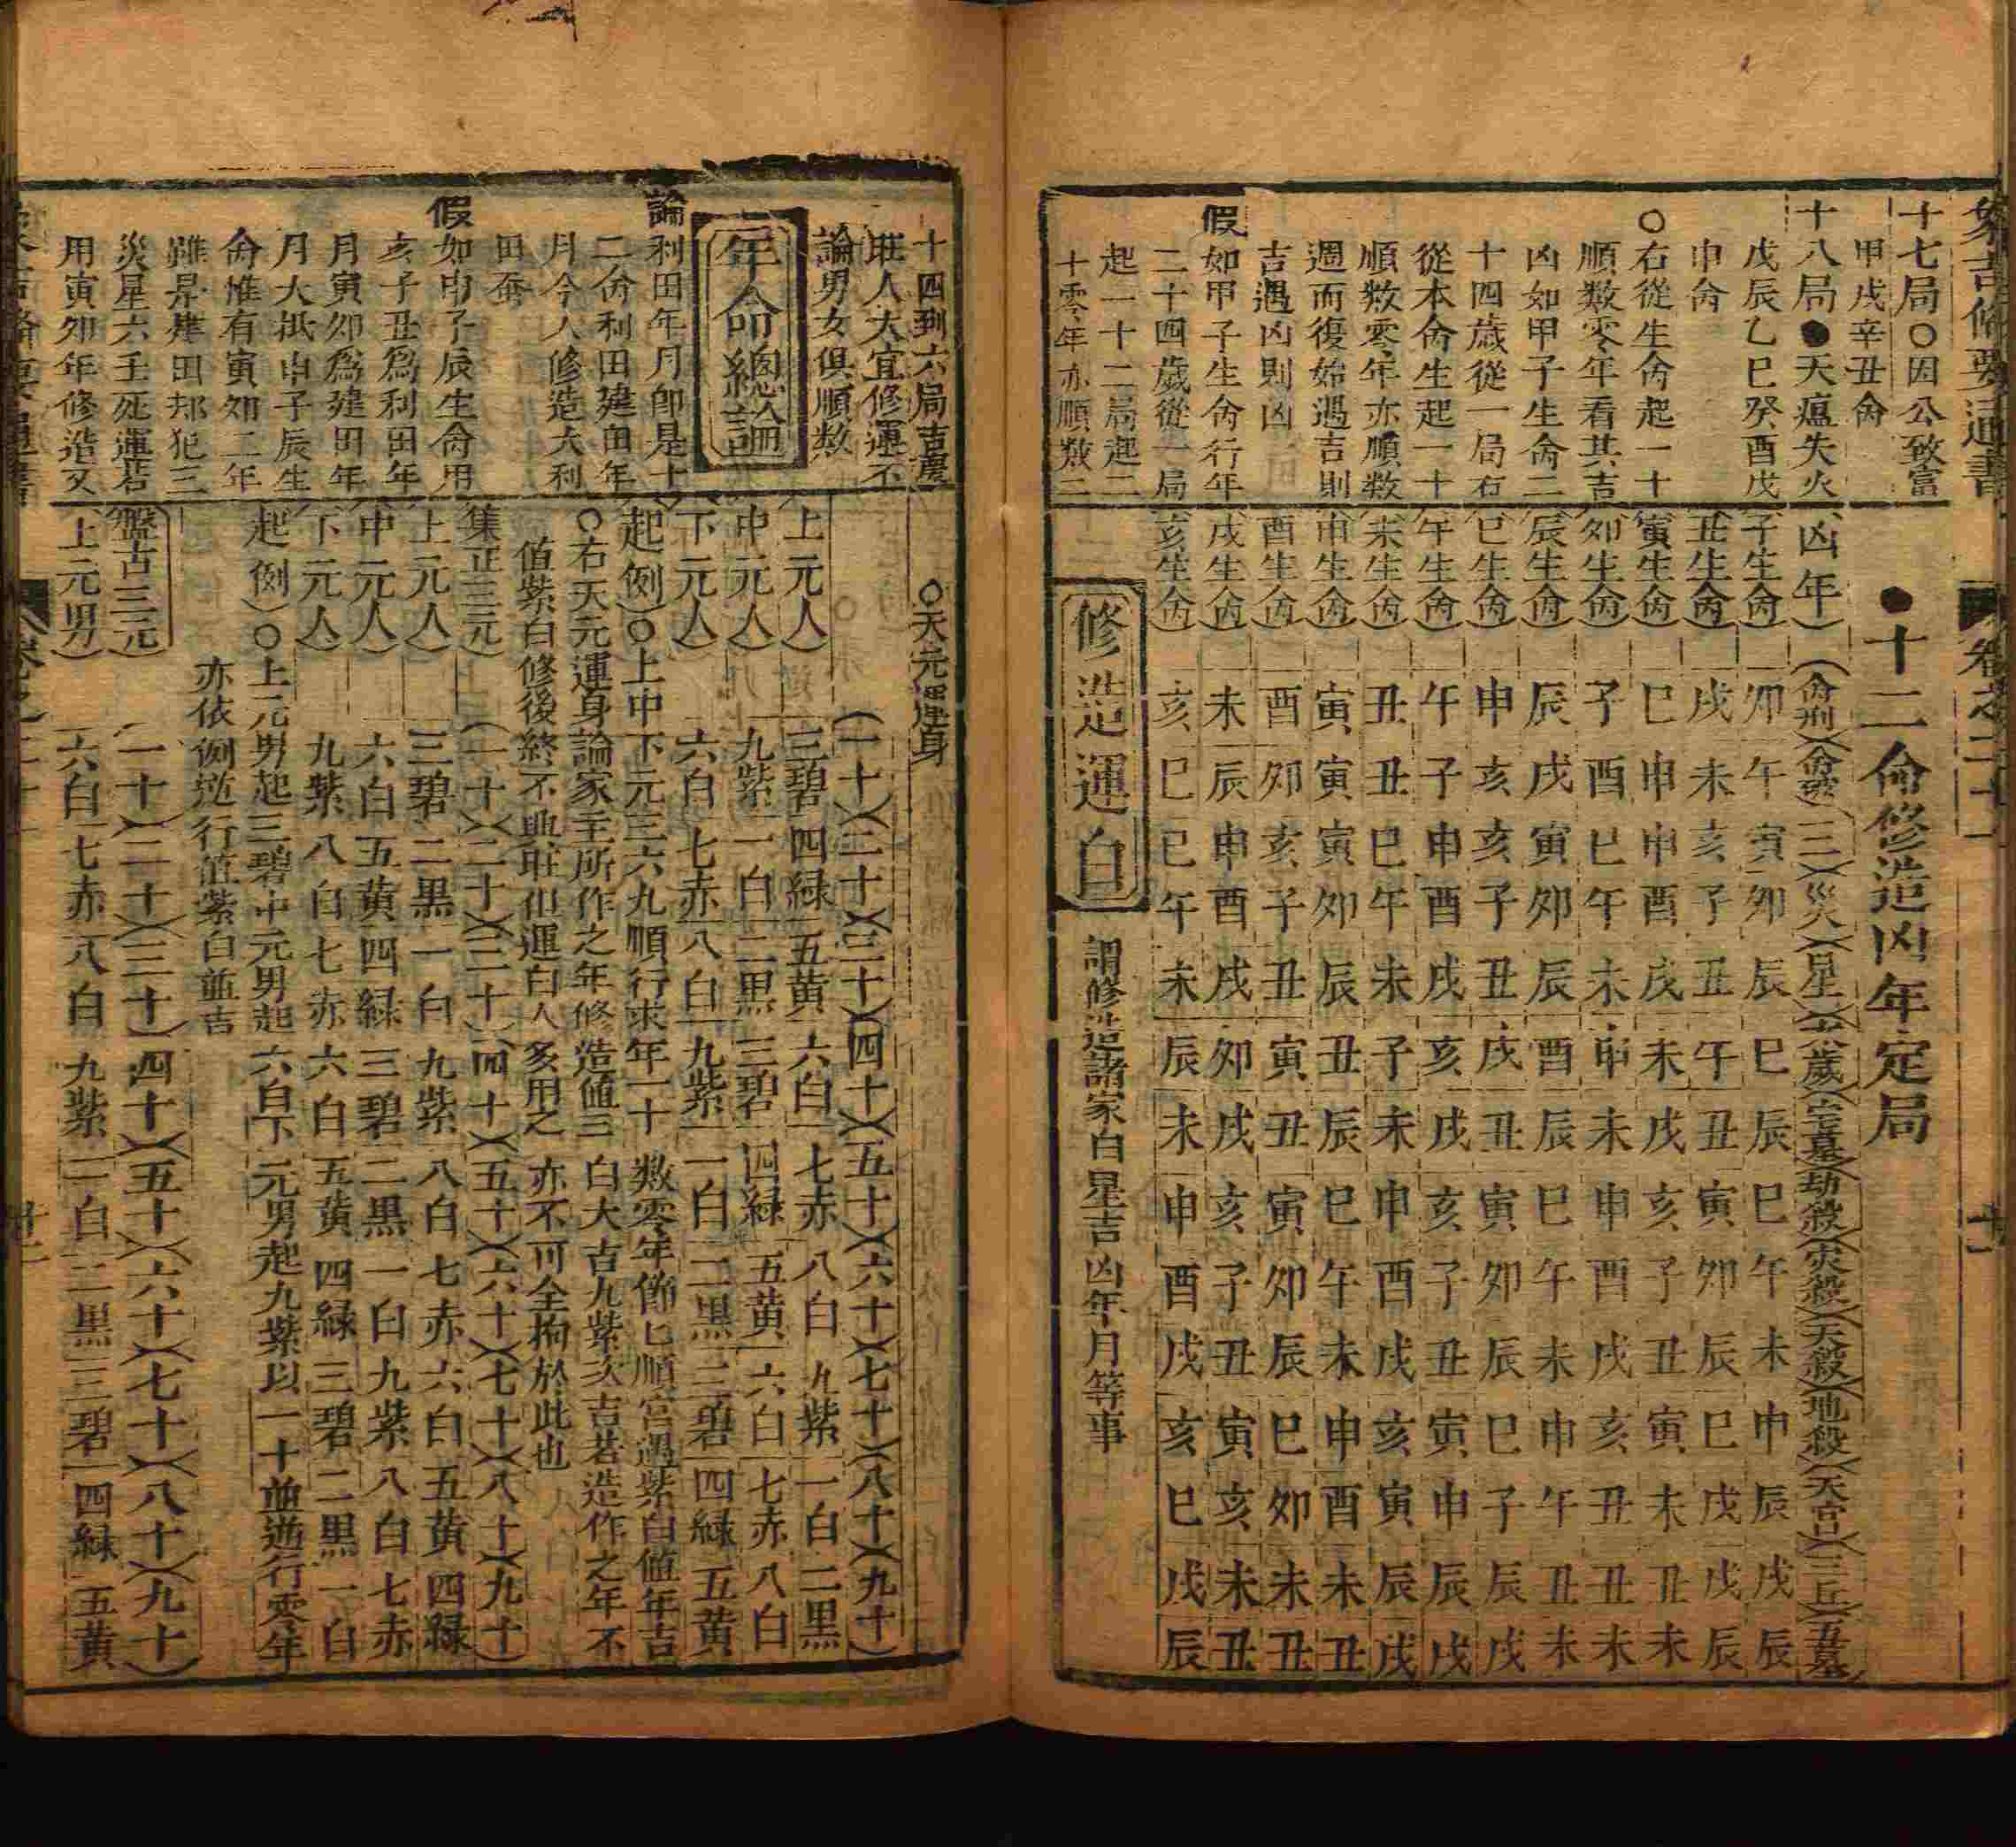 象吉備要通書
卷之二十一
十一
十七局○因公致富
甲戌辛丑命
十八局●天瘟失火
戊辰乙巳癸酉戊
申命
○右從生命起一十
順數零年看其吉
凶如甲子生命二
十四歲從一局右
從本命生起一十
順數零年亦順數
週而復始遇吉則
吉遇凶則凶
假如甲子生命行年
二十四歲從一局
起一十二局起二
十零年亦順數二
●十二命修造凶年定局
凶年）（命刑）（命破）（三災）（火星）（太歲）（宅墓）（劫殺）（灾殺）（天殺）（地殺）（天官）（三丘）（五墓）
子生命）卯午寅卯辰巳辰巳午未申辰戌辰
丑生命）戌未亥子丑午丑寅卯辰巳戌戌辰
寅生命）巳申申酉戌未戌亥子丑寅未丑未
卯生命）子酉巳午未申未申酉戌亥丑丑未
辰生命）辰戌寅卯辰酉辰巳午未申午丑未
巳生命）申亥亥子丑戌丑寅卯辰巳子辰戌
午生命）午子申酉戌亥戌亥子丑寅申辰戌
未生命）丑丑巳午未子未申酉戌亥寅辰戌
申生命）寅寅寅卯辰丑辰巳午未申酉未丑
酉生命）酉卯亥子丑寅丑寅卯辰巳卯未丑
戌生命）未辰申酉戌卯戌亥子丑寅亥未丑
亥生命）亥巳巳午未辰未申酉戌亥巳戌辰
修造運白
謂修造諸家白星吉凶年月等事
十四到六局吉慶
旺人大宜修運不
論男女俱順數
年命總論
論利田年月即是十
二命利田建田年
月令人修造大利
田蚕
假如申子辰生命用
亥子丑為利田年
月寅卯為建田年
月大抵申子辰生
命惟有寅卯二年
雖是建田却犯三
災星六壬死運若
用寅卯年修造又
○天元運身
（一十）（二十）（三十）（四十）（五十）（六十）（七十）（八十）（九十）
上元人）三碧四綠五黃六白七赤八白九紫一白二黑
中元人）九紫一白二黑三碧四綠五黃六白七赤八白
下元人）六白七赤八白九紫一白二黑三碧四綠五黃
起例）○上中下元三六九順行求年一十數零年節已順宮遇紫白值年吉
○右天元運身論家主所作之年修造值三白大吉九紫次吉若造作之年不
值紫白修後終不興旺但運白人多用之亦不可全拘於此也
集正三元）（一十）（二十）（三十）（四十）（五十）（六十）（七十）（八十）（九十）
上元人）三碧二黑一白九紫八白七赤六白五黃四綠
中元人）六白五黃四綠三碧二黑一白九紫八白七赤
下元人）九紫八白七赤六白五黃四綠三碧二黑一白
起例）○上元男起三碧中元男起六白下元男起九紫以一十並逆行零年
亦依例逆行值紫白並吉
盤古三元）（一十）（二十）（三十）（四十）（五十）（六十）（七十）（八十）（九十）
上元男）六白七赤八白九紫一白二黑三碧四綠五黃